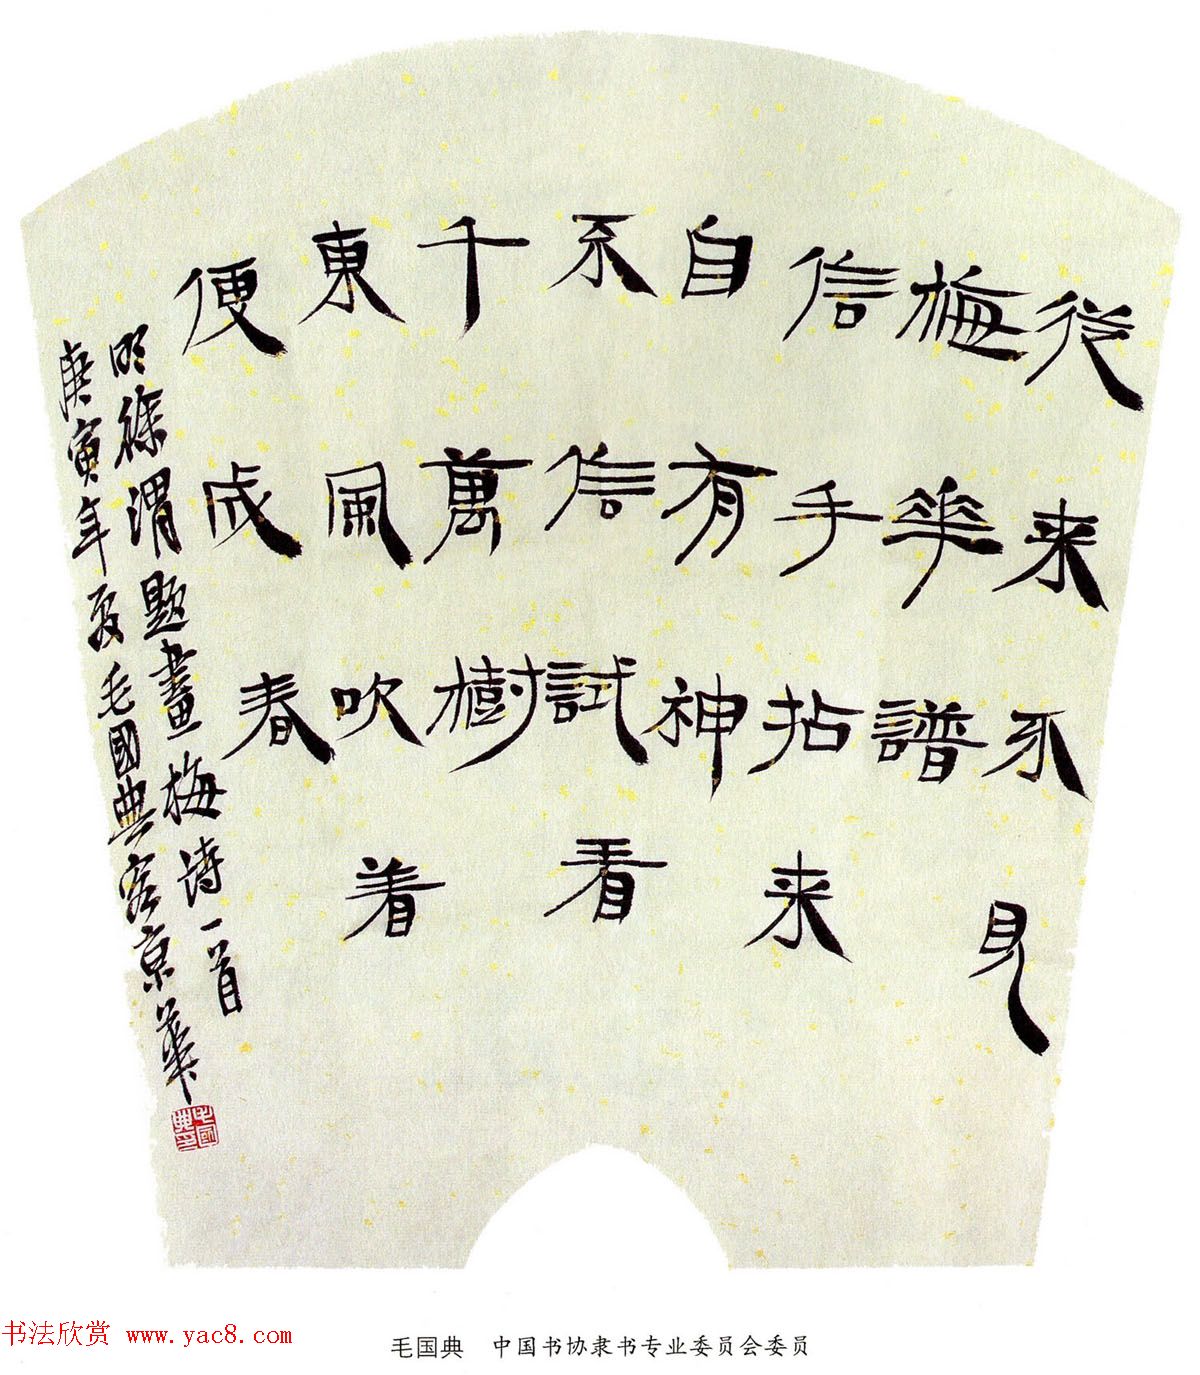 從来不見
梅華譜
信手拈来
自有神
不信試看
千萬樹
東風吹着
便成春
明徐渭題畫梅詩一首
庚寅年夏毛國典客京華
毛國典印
书法欣赏 www.yac8.com
毛国典 中国书协隶书专业委员会委员